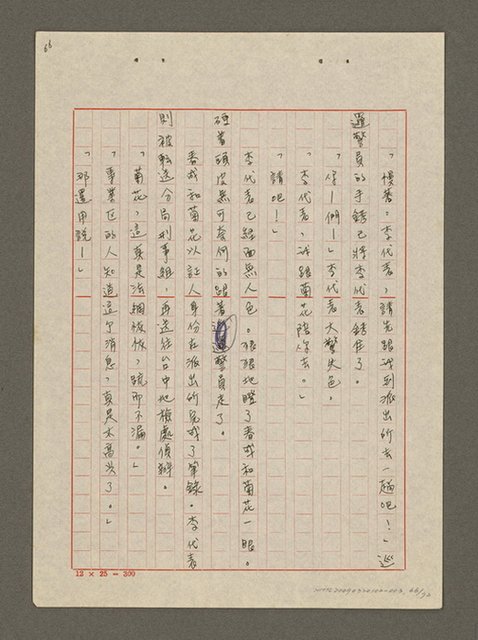 66
「慢著。李代表，請先跟我到派出所去一趟吧！」巡
邏警員的手銬已將李代表銬住了。
「你－們－」李代表大驚失色。
「李代表，我跟菊花陪你去。」
「請吧！」
李代表已經面無人色。狠狠地瞪了春成和菊花一眼。
硬著頭皮無可奈何的跟著巡邏警員走了。
春成和菊花以証人身份在派出所完成了筆錄。李代表
則被轉送分局刑事組，再送往台中地檢處偵辦。
「菊花，這真是法網恢恢，疏而不漏。」
「事業區的人知道這个消息，真是太高興了。」
「那還用說－」
12 × 25 = 300